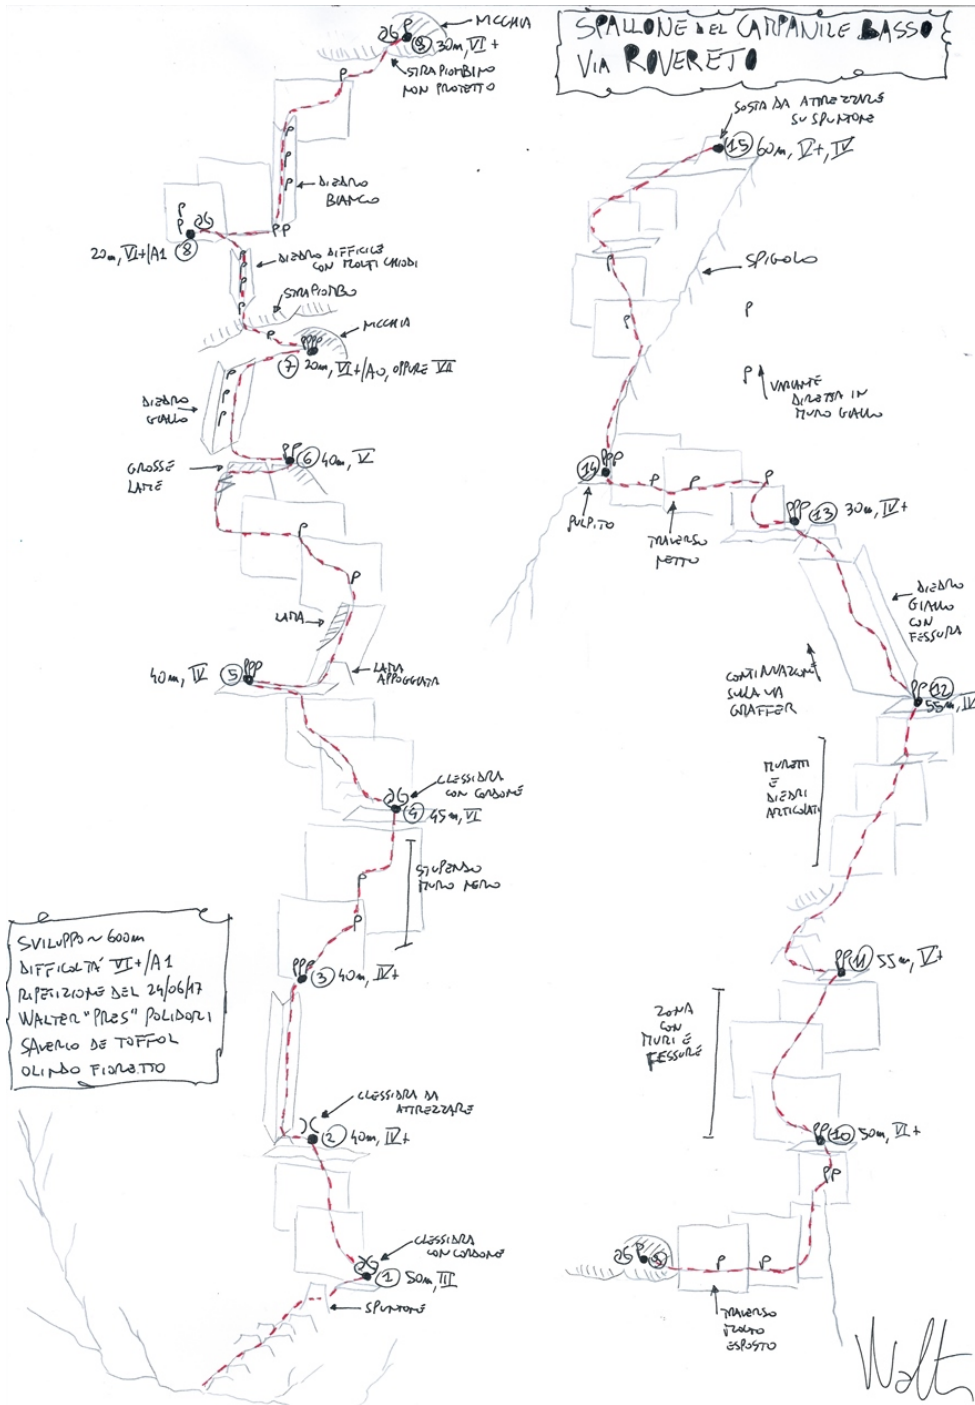 SPALLONE DEL CAMPANILE BASSO
VIA ROVERETO
NICCHIA
9 30m, VI+
STRAPIOMBINO
NON PROTETTO
DIEDRO
BIANCO
20m, VI+/A1 8
DIEDRO DIFFICILE
CON MOLTI CHIODI
STRAPIOMBO
NICCHIA
7 20m, VI+/A0, OPPURE VII
DIEDRO
GIALLO
GROSSE
LAME
6 40m, V
LAMA
LAMA
APPOGGIATA
40m, IV 5
CLESSIDRA
CON CORDONE
4 45m, VI
STUPENDO
MURO NERO
3 40m, IV+
CLESSIDRA DA
ATTREZZARE
2 40m, IV+
CLESSIDRA
CON CORDONE
1 50m, III
SPUNTONE
SVILUPPO ~ 600m
DIFFICOLTÀ VI+/A1
RIPETIZIONE DEL 24/06/17
WALTER "PRES" POLIDORI
SAVERIO DE TOFFOL
OLINDO FIORETTO
SOSTA DA ATTREZZARE
SU SPUNTONE
15 60m, V+, IV
SPIGOLO
VARIANTE
DIRETTA IN
MURO GIALLO
14
PULPITO
TRAVERSO
NETTO
13 30m, IV+
DIEDRO
GIALLO
CON
FESSURA
CONTINUAZIONE
SULLA VIA
GRAFFER
12
55m, IV
MURETTI
E
DIEDRI
ARTICOLATI
11 55m, V+
ZONA
CON
MURI E
FESSURE
10 50m, VI+
9
TRAVERSO
MOLTO
ESPOSTO
Walter